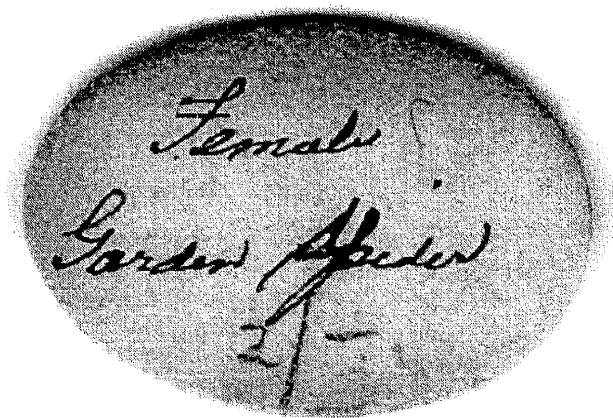 Female
Garden Spider
2/-